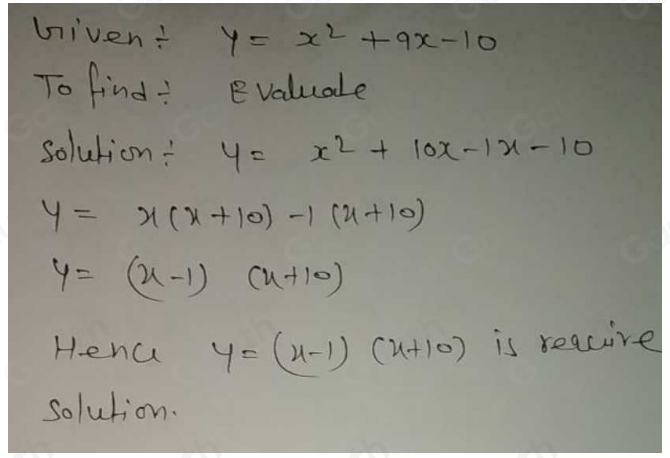 Given÷ y = x² + 9x - 10
To find÷ Evaluate
Solution÷ y = x² + 10x - 1x - 10
y = x(x+10) - 1(x+10)
y = (x-1) (x+10)
Hence y = (x-1) (x+10) is require
solution.